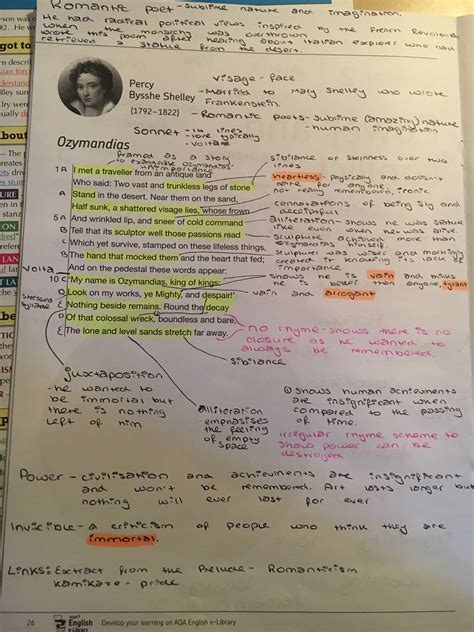 Romantic poet - sublime nature and imagination.
He had radical political views inspired by the French
when the monarchy was overthrown
wrote this poem after hearing about Italian explorer who had
retrieved a statue from the desert.
got to
bout
Percy
Bysshe Shelley
(1792–1822)
visage - face
- Married to Mary Shelley who wrote
Frankenstein
- Romantic poets - sublime (amazing) nature
- human imagination
Sonnet - 14 lines
- love typically
- Voltave
Ozymandias
framed as a story
to exaggerate ozymandias'
sibilance of sternness over two
lines
1A I met a traveller from an antique land
B Who said: Two vast and trunkless legs of stone
A Stand in the desert. Near them on the sand,
B Half sunk, a shattered visage lies, whose frown
5A And wrinkled lip, and sneer of cold command
B Tell that its sculptor well those passions read
C Which yet survive, stamped on these lifeless things,
D The hand that mocked them and the heart that fed;
C And on the pedestal these words appear:
10 'My name is Ozymandias, king of kings:
Look on my works, ye Mighty, and despair!'
E Nothing beside remains. Round the decay
Of that colossal wreck, boundless and bare,
E The lone and level sands stretch far away.
heartless - Physically and doesn't
care for anyone,
not really remembered, ironic
connotations of being sly and
deceitful
alliteration - shows he was
like even when he was alive.
sculpture achieved more than
Ozymandias himself
Sculpturer was wiser and
importance
volta
shows he is vain and thinks
he is better than anyone tyrant
vain and arrogant
no rhyme - shows there is no
closure as he wanted to
always be remembered.
Sibilance
juxtaposition
- he wanted to
be immortal but
there is nothing
left of him
alliteration
emphasises
the feeling
of empty
space
shows human achievements
are insignificant when
compared to the passing
of time.
irregular rhyme scheme to
show power can be
destroyed
Power - civilisation and achievments are insignificant
and won't be remembered. Art lasts longer but
nothing will ever last for ever
Invicible - a criticism of people who think they are
immortal.
Links: Extract from the Prelude - Romanticism
Kamikaze - pride
26
AQA
English
e-Library
Develop your learning on AQA English e-Library